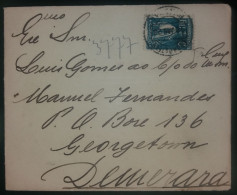 Exmo Snr.
3777
Luis Gomes ao c/o de
Manuel Fernandes
P. O. Box 136
Georgetown
Demerara